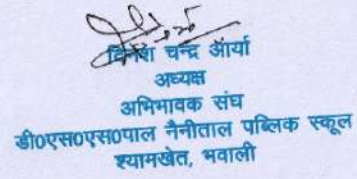 दिनेश चन्द्र आर्या
अध्यक्ष
अभिभावक संघ
डी०एस०एस०पाल नैनीताल पब्लिक स्कूल
श्यामखेत, भवाली